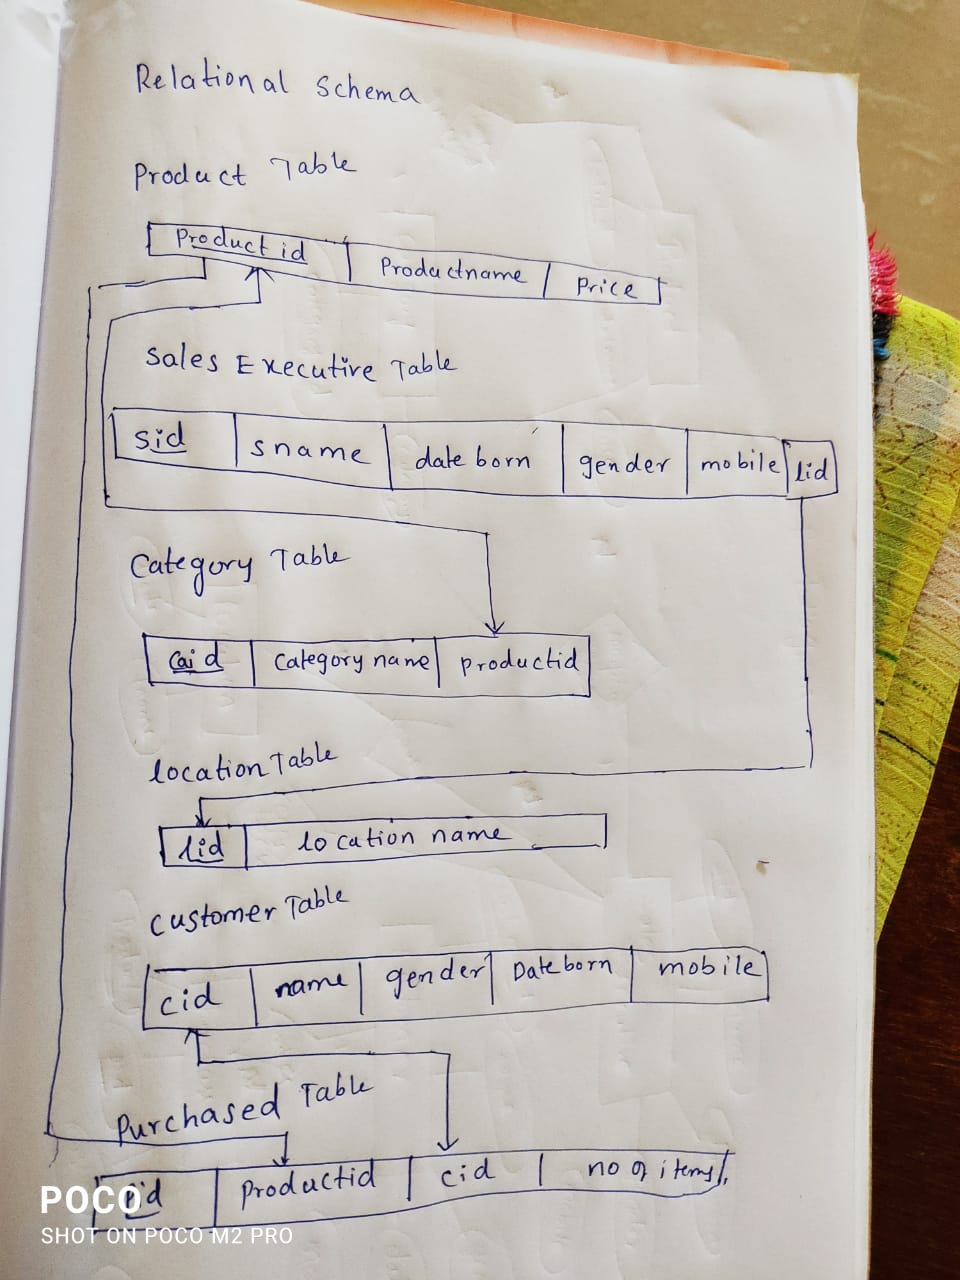 Relational Schema
Product Table
Product id Productname Price
Sales Executive Table
sid sname date born gender mobile lid
Category Table
Caid Category name productid
location Table
lid location name
Customer Table
cid name gender Date born mobile
Purchased Table
Productid cid no of items
POCO
SHOT ON POCO M2 PRO